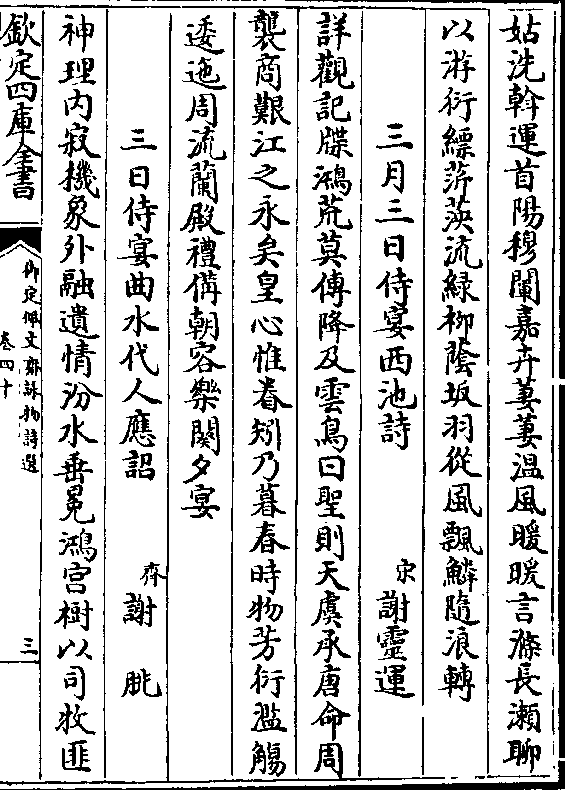 姑洗斡運首陽穆闡嘉卉萋萋温風暖暖言滌長瀬聊
以游衍縹蓱蓱流緑柳蔭坂羽從風飄鱗隨浪轉
三月三日侍宴西池詩 宋 謝靈運
詳觀記牒鴻荒莫傳降及雲鳥曰聖則天虞承唐命周
襲商艱江之永矣皇心惟眷矧乃暮春時物芳衍濫觴
逶迤周流蘭殿禮備朝容樂闋夕宴
三日侍宴曲水代人應詔 齊 謝朓
神理内寂機象外融遺情汾水垂冕鴻宫樹以司牧匪
欽定四庫全書
御定佩文齋詠物詩選
卷四十
三